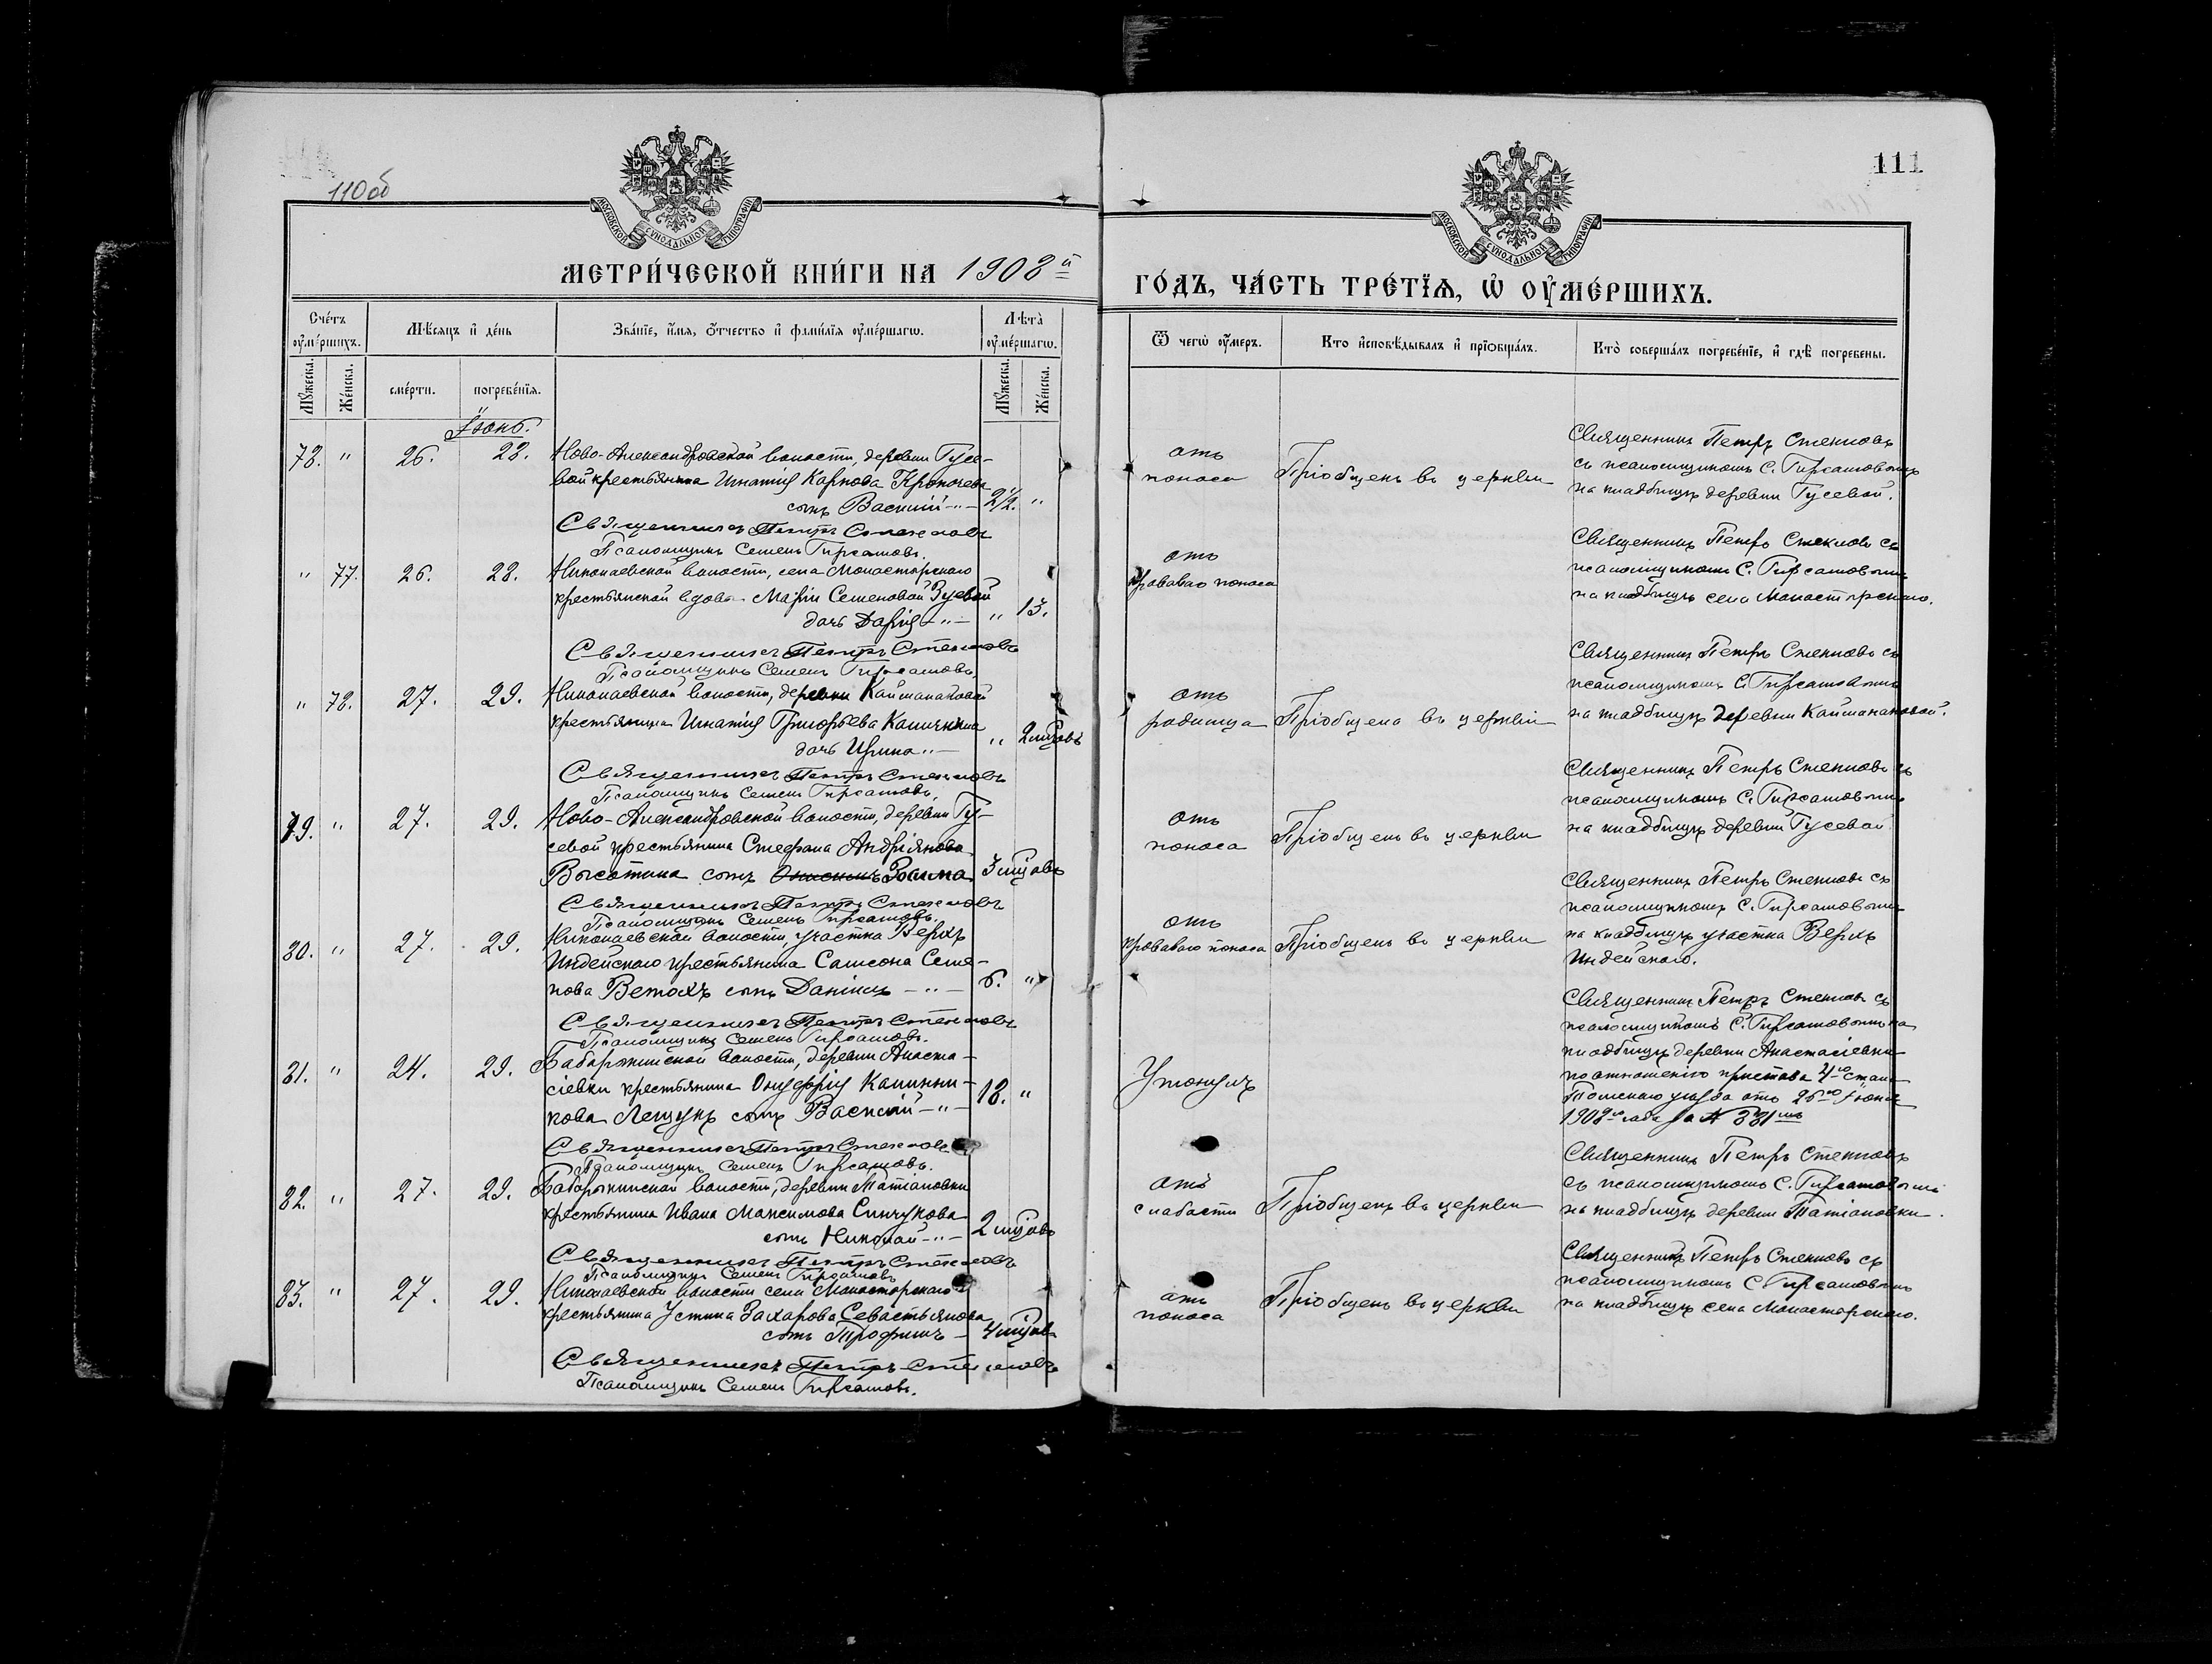 110об
111
МОСКОВСКОЙ СѴНОДАЛЬНОЙ ТИПОГРАФІИ
МОСКОВСКОЙ СѴНОДАЛЬНОЙ ТИПОГРАФІИ
МЕТРИ́ЧЕСКОЙ КНИ́ГИ НА 1908й
ГО́ДЪ, ЧА́СТЬ ТРЕ́ТЇѦ, Ѡ҆ ОУ҆МЕ́РШИХЪ.
Сче́тъ оу҆ме́ршихъ.
Мѣ́сѧцъ и҆ де́нь
Зва́нїе, и҆́мѧ, ѻ҆́тчество и҆ фами́лїѧ оу҆ме́ршагѡ.
Лѣта̀ оу҆ме́ршагѡ.
Ѿ чегѡ̀ оу҆́меръ.
Кто̀ и҆сповѣ́дывалъ и҆ прїѡбща́лъ.
Кто̀ соверша́лъ погребе́нїе, и҆ гдѣ̀ погребены.
Мꙋ́жеска.
Же́нска.
сме́рти.
погребе́нїѧ.
Мꙋ́жеска.
Же́нска.
Іюнь.
78. " 26. 28. Ново-Александровской волости, деревни Гусе-
вой крестьянина Игнатія Карпова
сынъ Василій -"- 2½. "
Священникъ Петръ Стекловъ
Псаломщикъ Семенъ Гирсамовъ.
отъ
поноса
Пріобщенъ въ церкви
Священникъ Петръ Стекловъ
съ псаломщикомъ С. Гирсамовымъ
на кладбищѣ деревни Гусевой.
" 77. 26. 28. Николаевской волости, села Монастырскаго
крестьянской вдовы Маріи Семеновой Зуевой
дочь Дарія -"- " 13.
Священникъ Петръ Стекловъ
Псаломщикъ Семенъ Гирсамовъ.
отъ
кроваваго поноса
Священникъ Петръ Стекловъ съ
псаломщикомъ С. Гирсамовымъ
на кладбищѣ села Монастырскаго.
" 78. 27. 29. Николаевской волости, деревни Каймановой
крестьянина Игнатія Григорьева
дочь Ирина "- " 2 мѣсяцовъ
Священникъ Петръ Стекловъ
Псаломщикъ Семенъ Гирсамовъ.
отъ
родимца
Пріобщена въ церкви
Священникъ Петръ Стекловъ съ
псаломщикомъ С. Гирсамовымъ
на кладбищѣ деревни
79. " 27. 29. Ново-Александровской волости, деревни Гу-
севой крестьянина Стефана Андріянова
Высотина сынъ Зосима 3 мѣсяцовъ
Священникъ Петръ Стекловъ
Псаломщикъ Семенъ Гирсамовъ.
отъ
поноса
Пріобщенъ въ церкви
Священникъ Петръ Стекловъ съ
псаломщикомъ С. Гирсамовымъ
на кладбищѣ деревни Гусевой
80. " 27. 29. Николаевской волости, участка Верхъ
Индейскаго крестьянина Самсона Семе-
нова Ветохъ сынъ Даніилъ -"- 6. "
Священникъ Петръ Стекловъ
Псаломщикъ Семенъ Гирсамовъ.
отъ
кроваваго поноса
Пріобщенъ въ церкви
Священникъ Петръ Стекловъ съ
псаломщикомъ С. Гирсамовымъ
на кладбищѣ участка Верхъ
Индейскаго.
81. " 24. 29. Бабарыкинской волости, деревни Анаста-
сіевки крестьянина Онуфрія Калинни-
кова сынъ Василій -"- 18. "
Священникъ Петръ Стекловъ
Псаломщикъ Семенъ Гирсамовъ.
Утонулъ
Священникъ Петръ Стекловъ съ
псаломщикомъ С. Гирсамовымъ на
кладбищѣ деревни Анастасіевки
по отношенію пристава 4го стана
Томскаго уѣзда отъ 26го Іюня
1908го года за № 331мъ
82. " 27. 29. Бабарыкинской волости, деревни Татіановки
крестьянина Ивана Максимова Синчукова
сынъ Николай -"- 2 мѣсяцовъ
Священникъ Петръ Стекловъ
Псаломщикъ Семенъ Гирсамовъ
отъ
слабости
Пріобщенъ въ церкви
Священникъ Петръ Стекловъ
съ псаломщикомъ С. Гирсамовымъ
на кладбищѣ деревни Татіановки.
83. " 27. 29. Николаевской волости села Монастырскаго
крестьянина Устина Захарова Севастьянова
сынъ Трофимъ - 4 мѣсяцовъ
Священникъ Петръ Стекловъ
Псаломщикъ Семенъ Гирсамовъ.
отъ
поноса
Пріобщенъ въ церкви
Священникъ Петръ Стекловъ съ
псаломщикомъ С. Гирсамовымъ
на кладбищѣ села Монастырскаго.